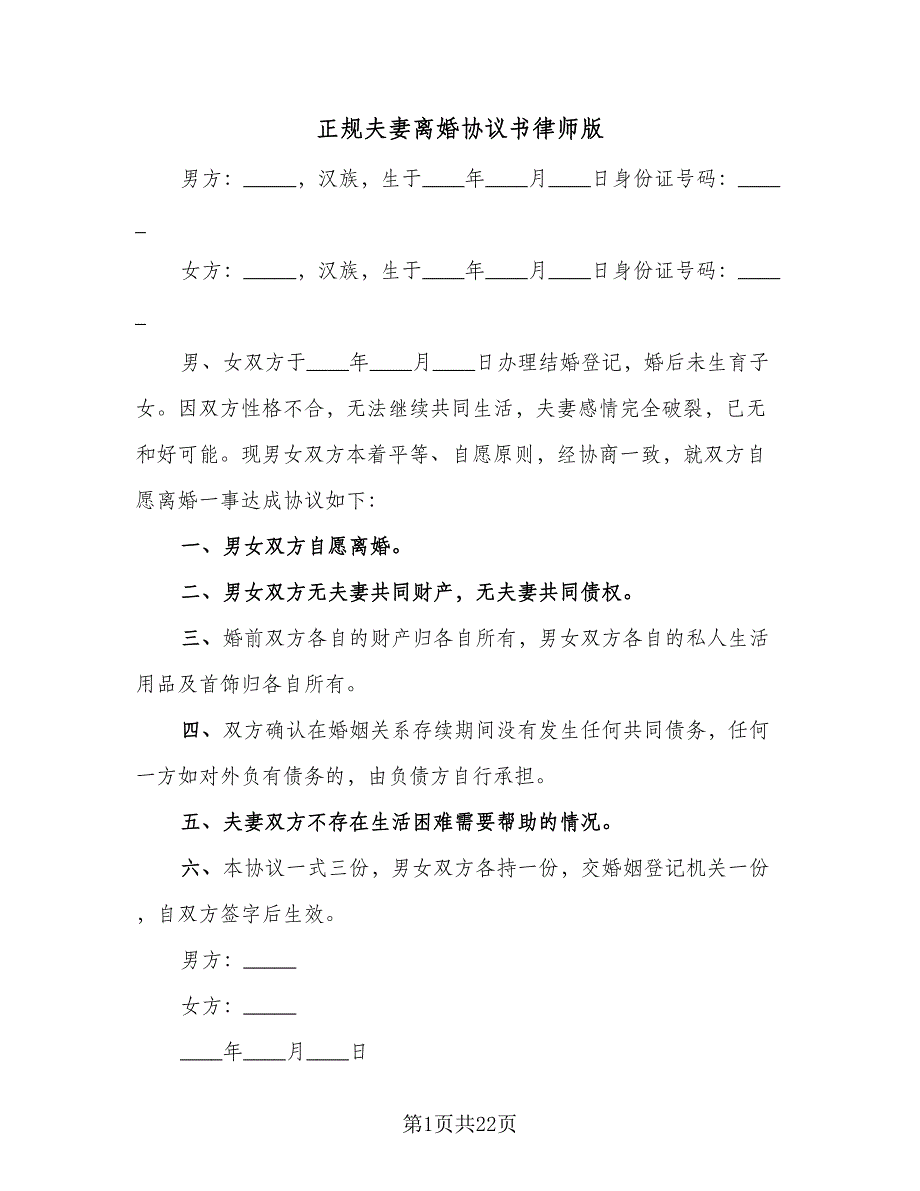 正规夫妻离婚协议书律师版
男方：_____，汉族，生于____年____月____日身份证号码：____
_
女方：_____，汉族，生于____年____月____日身份证号码：____
_
男、女双方于____年____月____日办理结婚登记，婚后未生育子
女。因双方性格不合，无法继续共同生活，夫妻感情完全破裂，已无
和好可能。现男女双方本着平等、自愿原则，经协商一致，就双方自
愿离婚一事达成协议如下：
一、男女双方自愿离婚。
二、男女双方无夫妻共同财产，无夫妻共同债权。
三、婚前双方各自的财产归各自所有，男女双方各自的私人生活
用品及首饰归各自所有。
四、双方确认在婚姻关系存续期间没有发生任何共同债务，任何
一方如对外负有债务的，由负债方自行承担。
五、夫妻双方不存在生活困难需要帮助的情况。
六、本协议一式三份，男女双方各持一份，交婚姻登记机关一份
，自双方签字后生效。
男方：_____
女方：_____
____年____月____日
第1页共22页